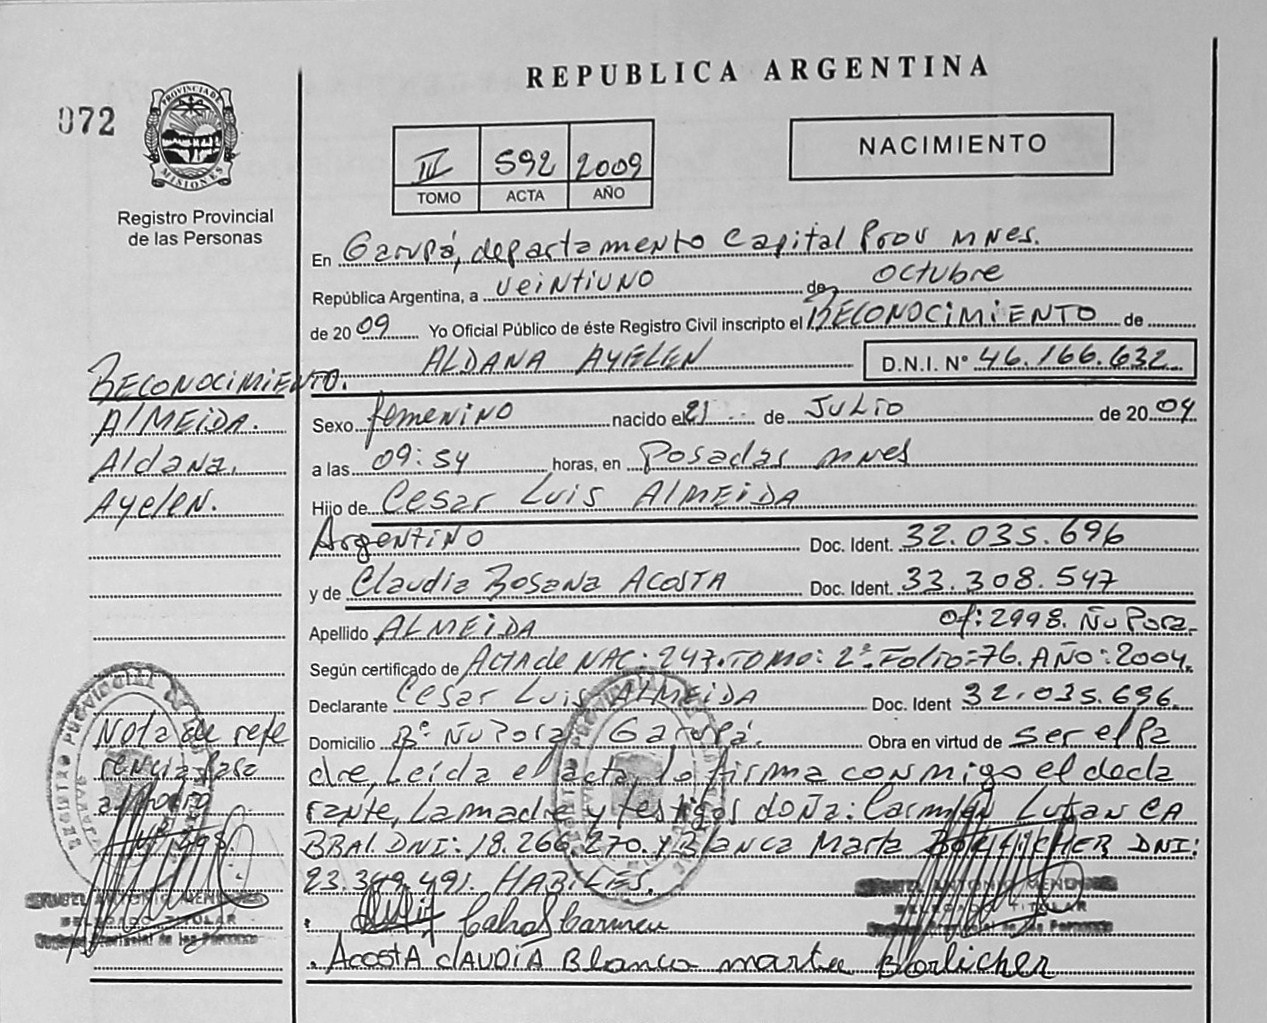 REPUBLICA ARGENTINA
072
PROVINCIA DE
MISIONES
Registro Provincial
de las Personas
III 592 2009
TOMO ACTA AÑO
NACIMIENTO
En Garupá, departamento Capital Prov mnes.
República Argentina, a veintiuno de octubre
de 2009 Yo Oficial Público de éste Registro Civil inscripto el RECONOCIMIENTO de
ALDANA AYELEN D.N.I. N° 46.166.632
Sexo femenino nacido el 21 de JULIO de 2004
a las 09:54 horas, en Posadas mnes
Hijo de Cesar Luis ALMEIDA
Argentino Doc. Ident. 32.035.696
y de Claudia Rosana ACOSTA Doc. Ident. 33.308.547
Apellido ALMEIDA Of: 2998. Ñu Pora.
Según certificado de Acta de NAC: 247. TOMO: 2°. Folio: 76. AÑO: 2004.
Declarante Cesar Luis ALMEIDA Doc. Ident 32.035.696.
Domicilio B° Ñu Pora Garupá. Obra en virtud de ser el Pa
dre, Leída el acta, la firma conmigo el decla
rante, La madre y testigos doña: Carmen Lujan CA
BRAL DNI: 18.266.270. Y Blanca Marta BORLICHER DNI:
23.349.491. HABILES.
Cabral Carmen
ACOSTA CLAUDIA Blanca marta Borlicher
RECONOCIMIENTO.
ALMEIDA.
Aldana.
Ayelen.
Nota de refe
rencia
REGISTRO PROVINCIAL DE LAS
REGISTRO PROVINCIAL DE LAS
MIGUEL ANTONIO MENDOZA
DELEGADO TITULAR
Registro Provincial de las Personas
MIGUEL ANTONIO MENDOZA
DELEGADO TITULAR
Registro Provincial de las Personas